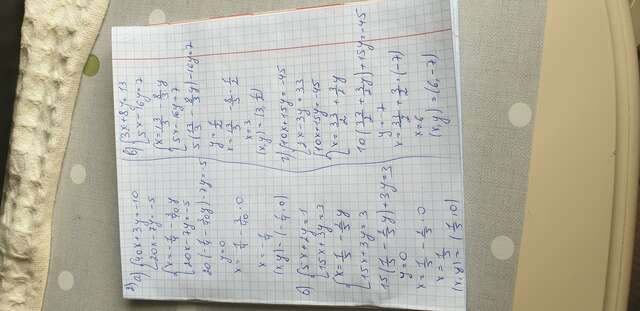 2) a) {40x+3y=-10
{20x-7y=-5
{x=-1/4-3/40y
{20x-7y=-5
20(-1/4-3/40y)-7y=-5
y=0
x=-1/4-3/40·0
x=-1/4
(x,y)=(-1/4,0)
б) {5x+2y=1
{15x+3y=3
{x=1/5-2/5y
{15x+3y=3
15(1/5-2/5y)+3y=3
y=0
x=1/5-2/5·0
x=1/5
(x,y)=(1/5,0)
в) {3x+8y=13
{5x-16y=7
{x=13/3-8/3y
{5x-16y=7
5(13/3-8/3y)-16y=7
y=1/2
x=13/3-8/3·1/2
x=3
(x,y)=(3,1/2)
г) {10x+15y=-45
{2x-3y=33
{10x+15y=-45
{x=33/2+3/2y
10(33/2+3/2y)+15y=-45
y=-7
x=33/2+3/2·(-7)
x=6
(x,y)=(6,-7)